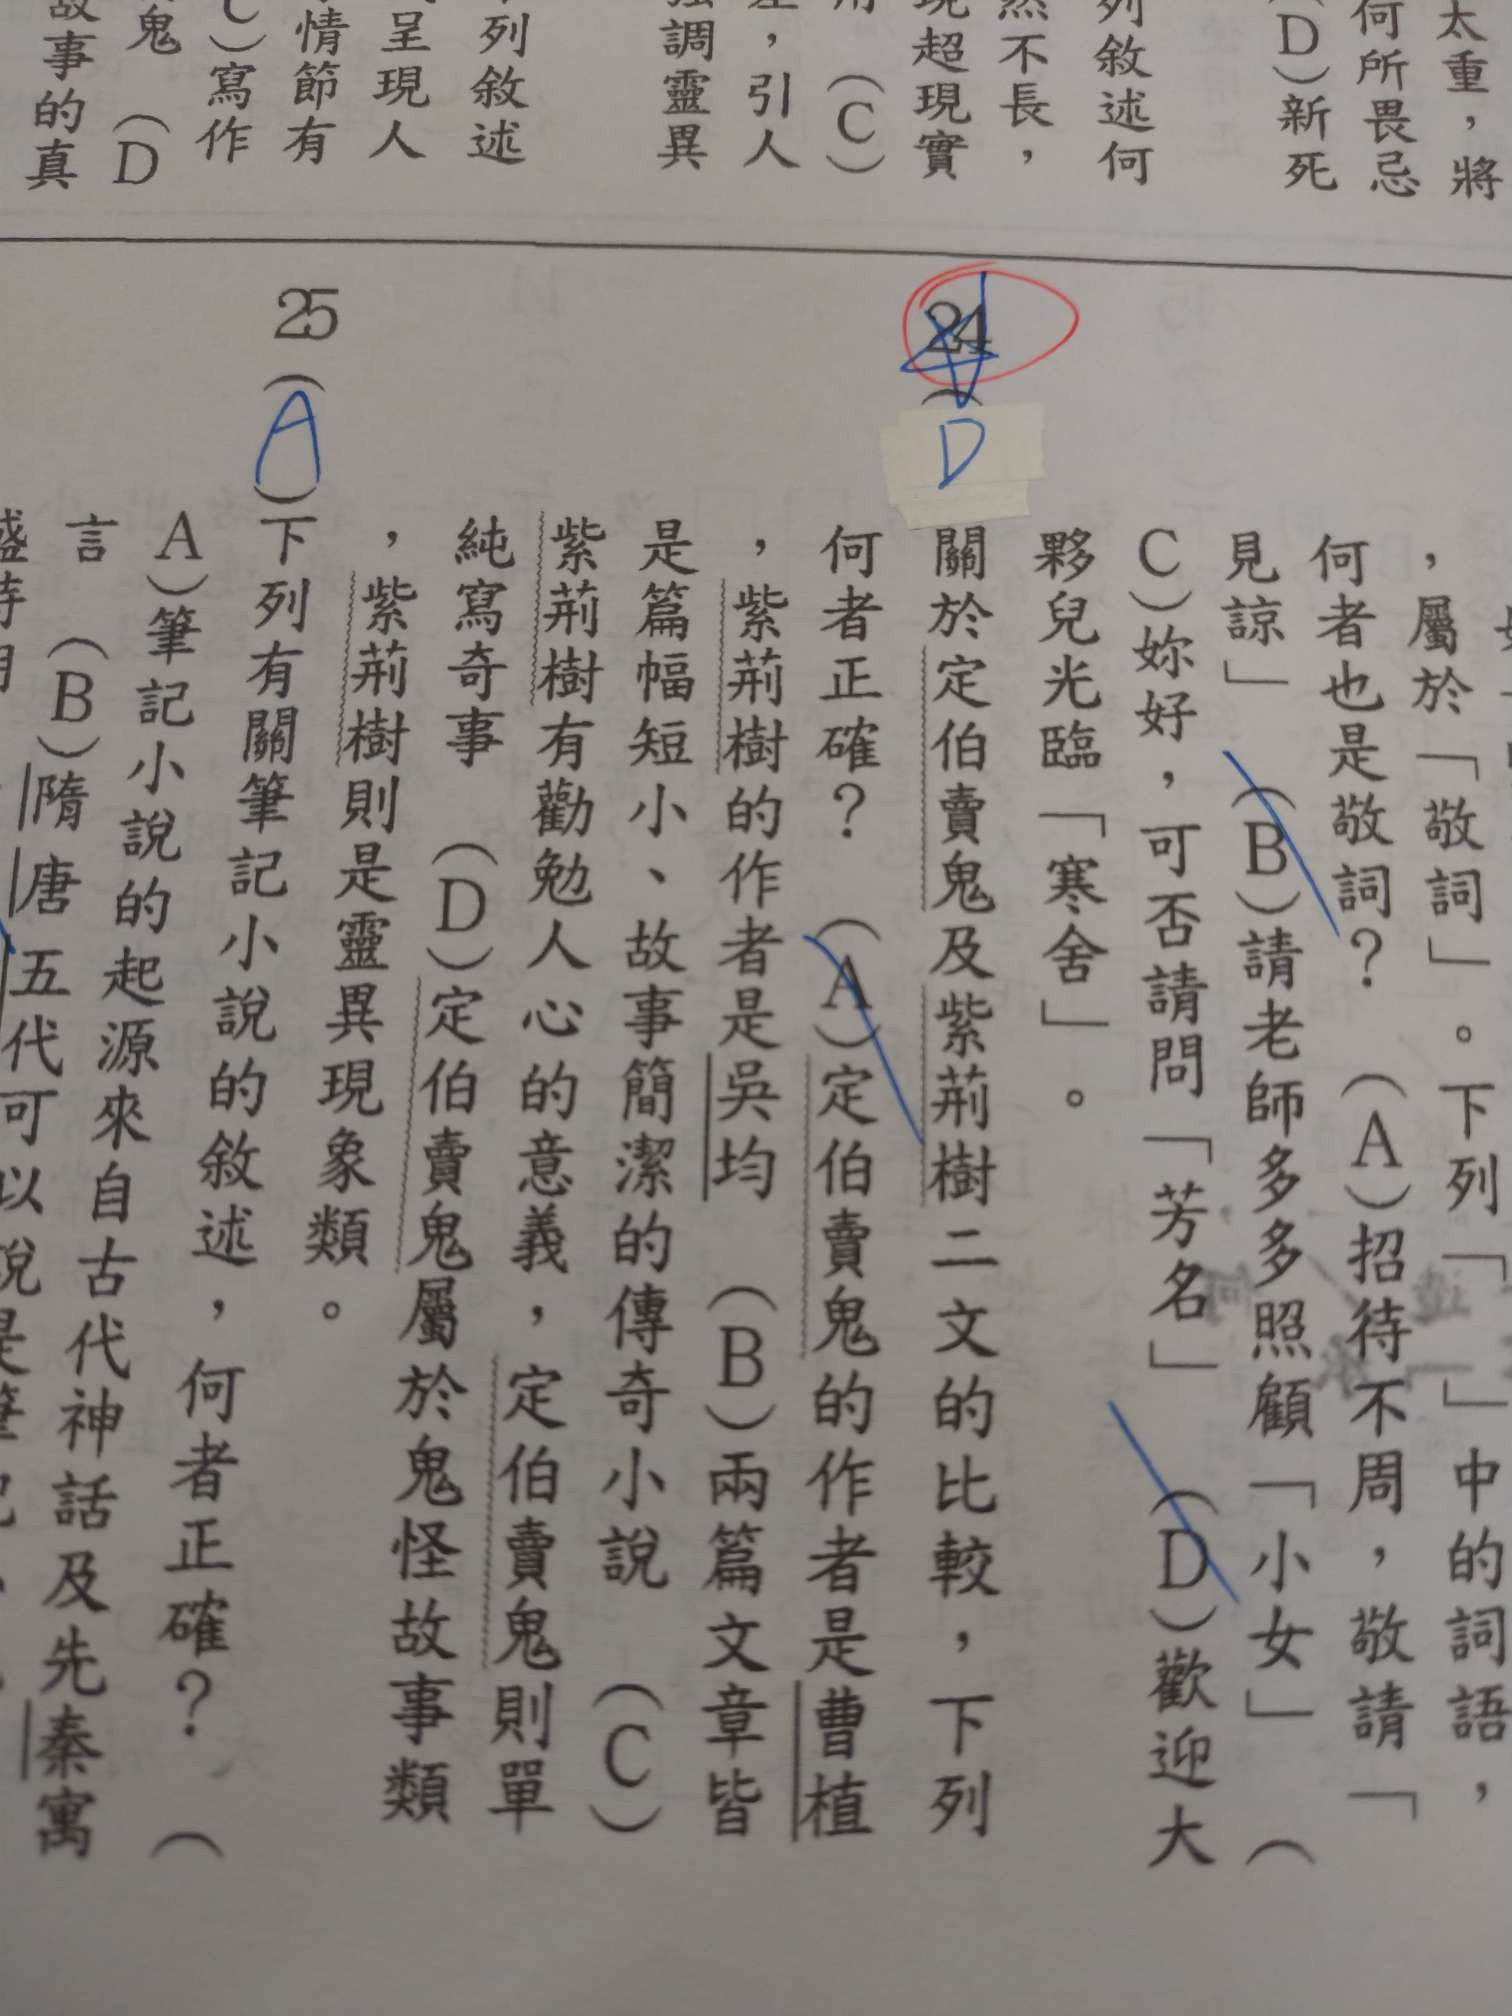 太重，將
何所畏忌
(D)新死
列敘述何
然不長，
現超現實
(C)
，引人
強調靈異
列敘述
呈現人
情節有
C)寫作
鬼 (D
故事的真
，屬於「敬詞」。下列「 」中的詞語，
何者也是敬詞？ (A)招待不周，敬請「
見諒」 (B)請老師多多照顧「小女」 (
C)妳好，可否請問「芳名」 (D)歡迎大
夥兒光臨「寒舍」。
24 ( D 關於定伯賣鬼及紫荊樹二文的比較，下列
何者正確？ (A)定伯賣鬼的作者是曹植
，紫荊樹的作者是吳均 (B)兩篇文章皆
是篇幅短小、故事簡潔的傳奇小說 (C)
紫荊樹有勸勉人心的意義，定伯賣鬼則單
純寫奇事 (D)定伯賣鬼屬於鬼怪故事類
，紫荊樹則是靈異現象類。
25 (A)下列有關筆記小說的敘述，何者正確？ (
A)筆記小說的起源來自古代神話及先秦寓
言 (B)隋唐五代可以說是筆記